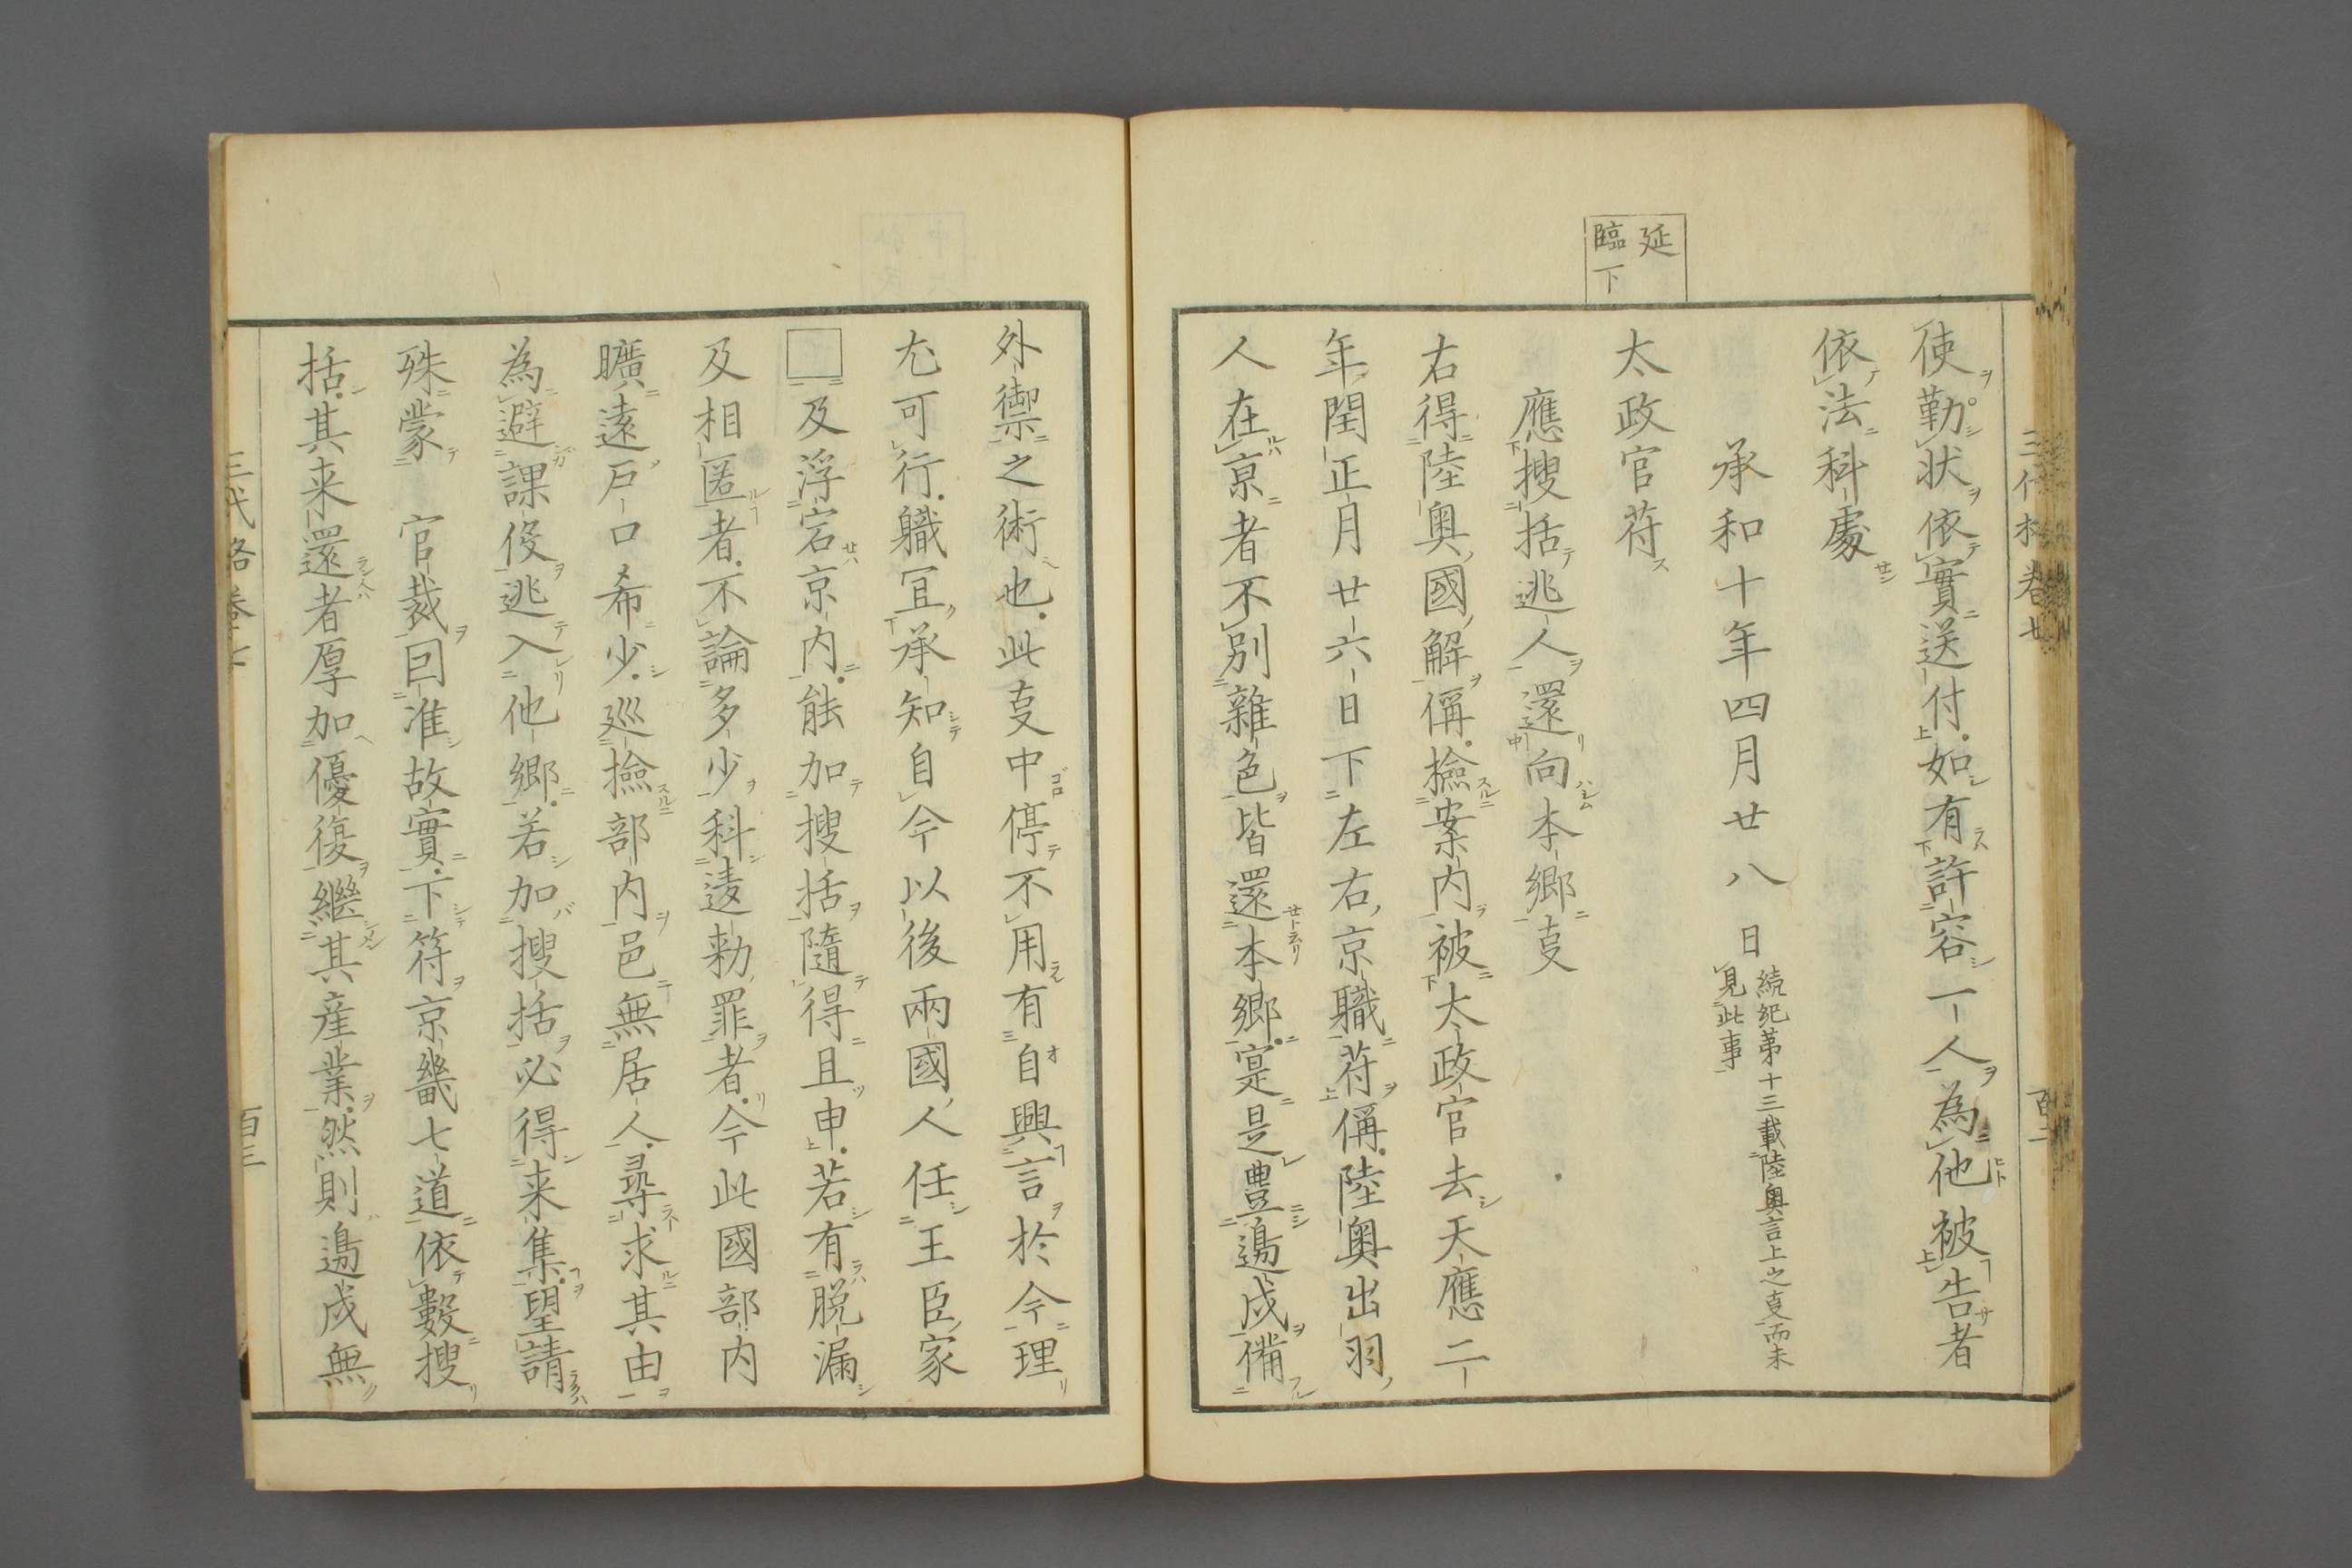 延
臨下
使勒状依實送付如有許容一人為他被告者
依法科處
承和十年四月廿八日
続紀第十三載陸奥言上之支而未
見此事
太政官符
應搜括逃人還向本鄉支
右得陸奥國解偁撿案内被太政官去天應二
年閏正月廿六日下左右京職符偁陸奥出羽
人在京者不別雜色皆還本鄉寔是豊邊戍備
外禦之術也此支中停不用有自興言於今理
尤可行職冝承知自今以後兩國人任王臣家
□及浮宕京内能加搜括隨得且申若有脱漏
及相匿者不論多少科違勅罪者今此國部内
曠遠戸口希少巡撿部内邑無居人尋求其由
為避課役逃入他鄉若加搜括必得来集望請
殊蒙 官裁因准故實下符京畿七道依數搜
括其来還者厚加優復繼其産業然則邊戍無